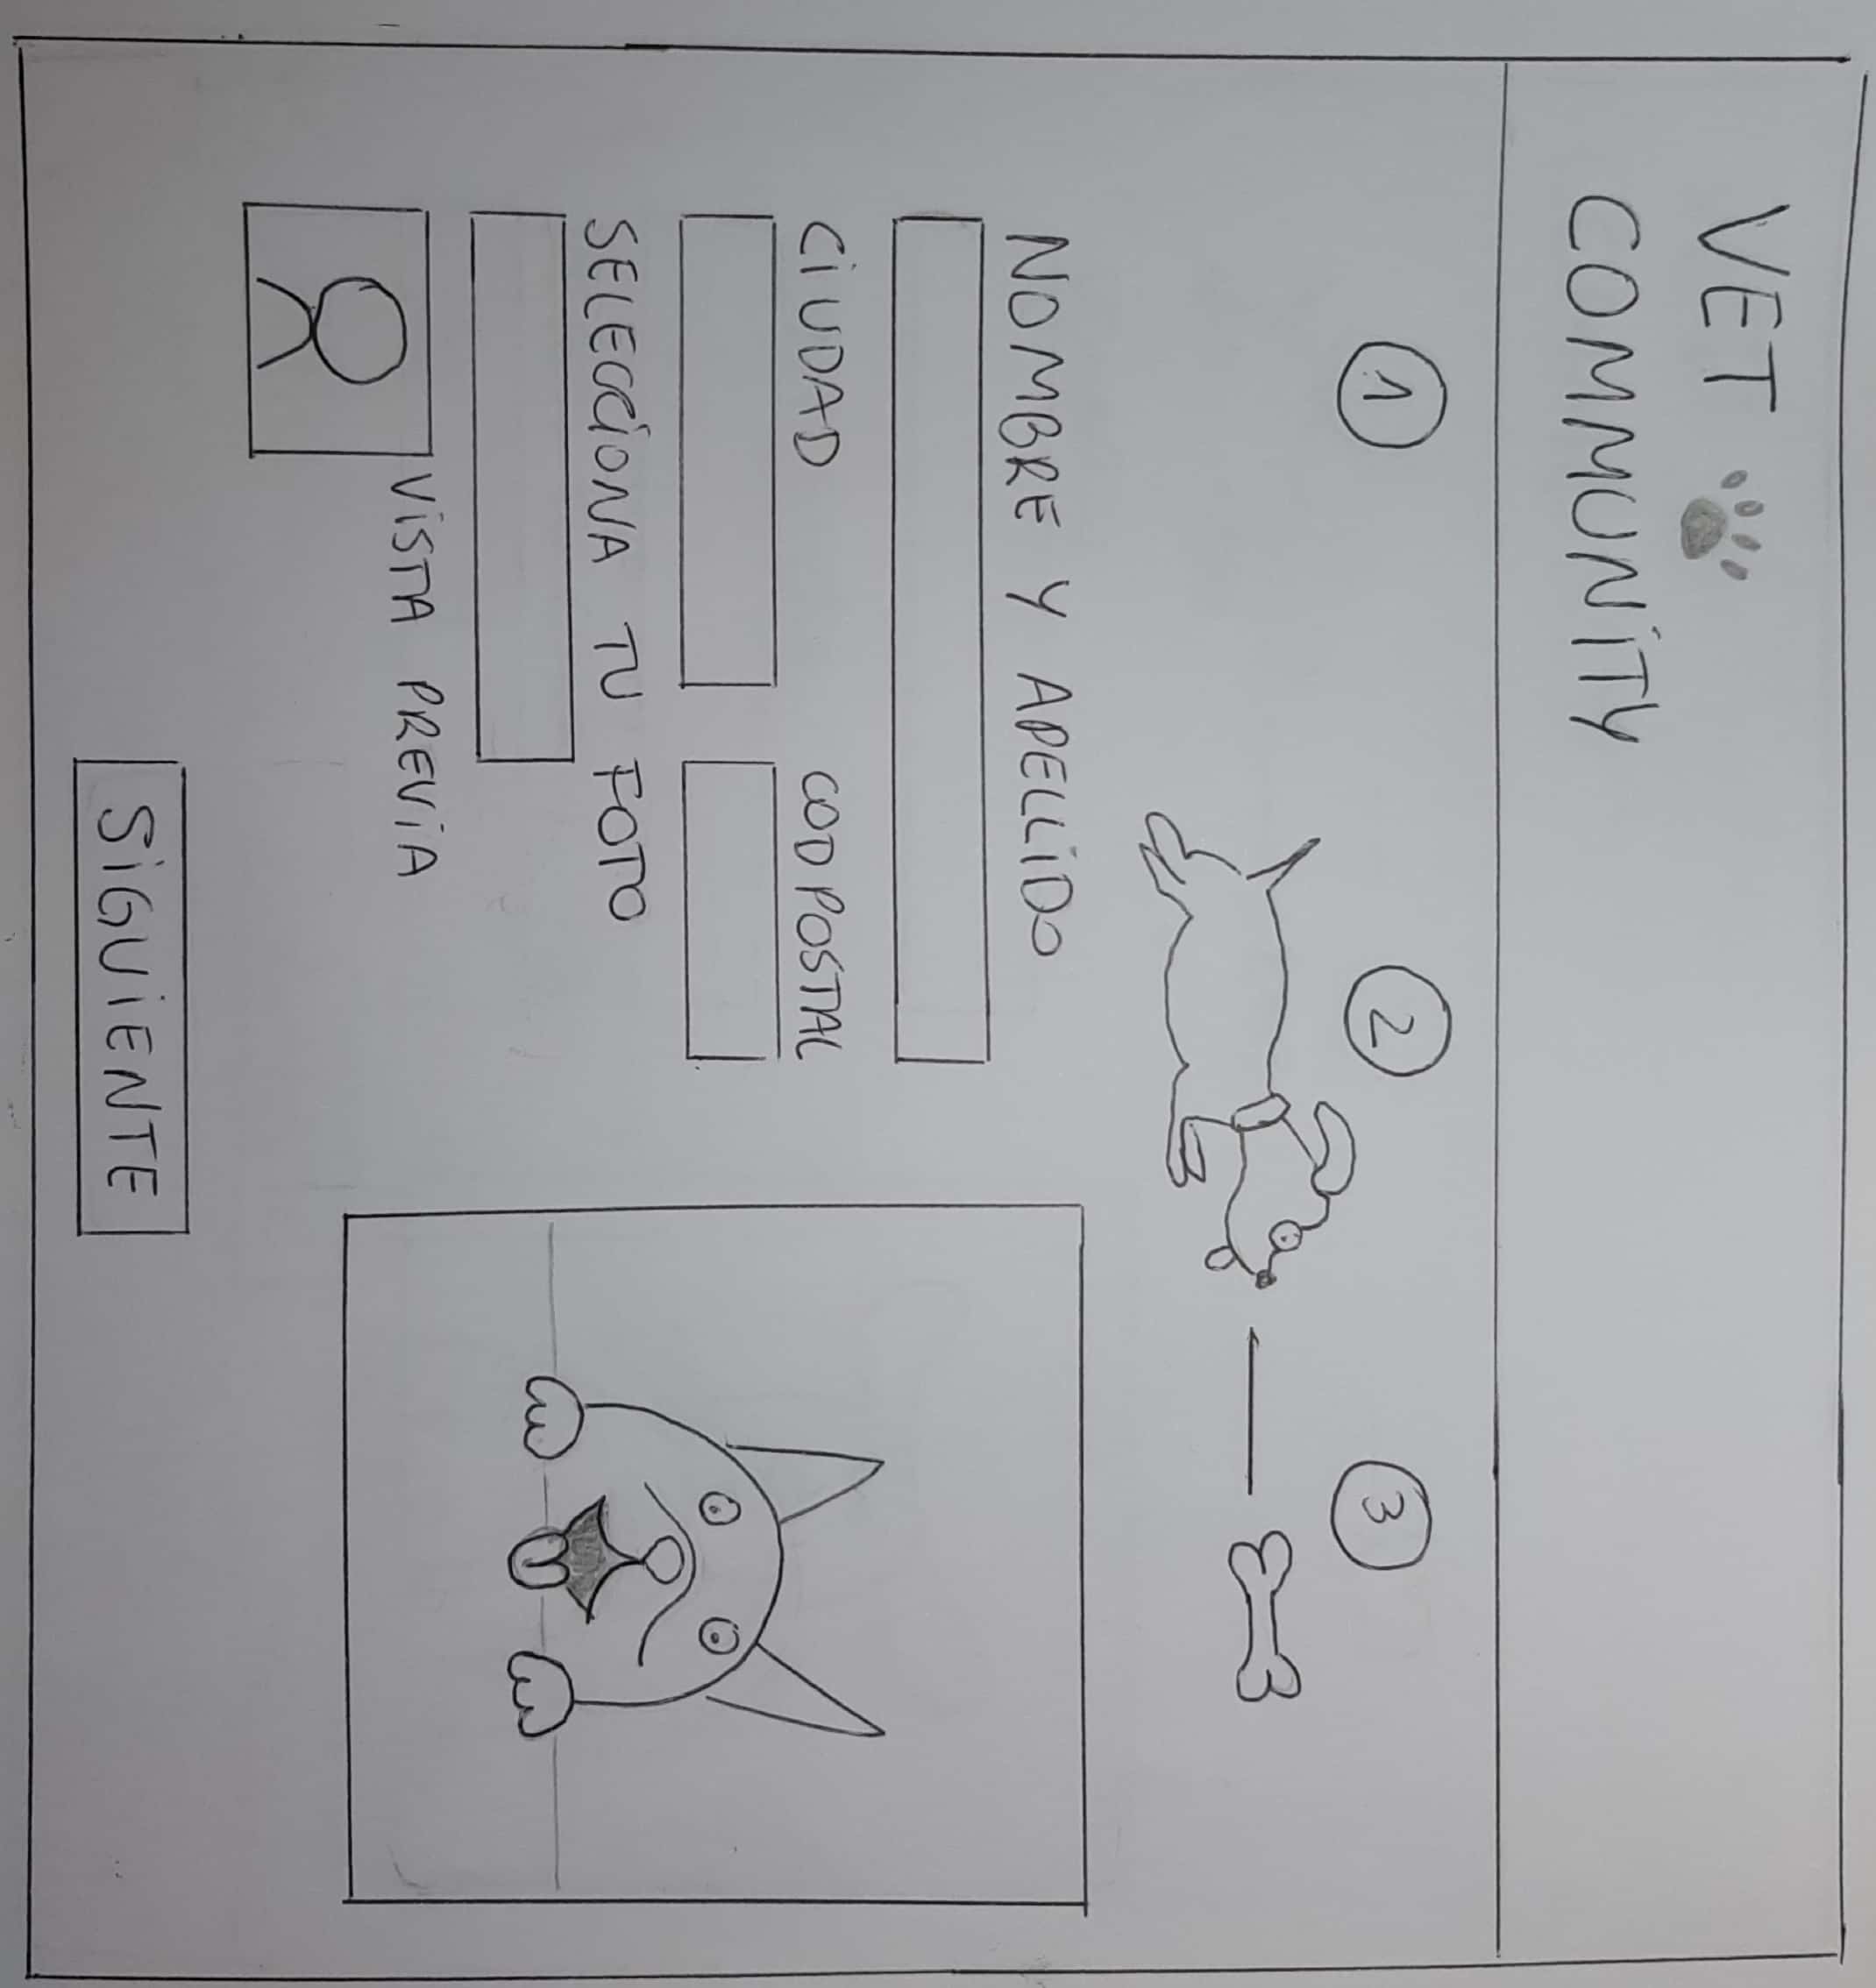 VET
COMMUNITY
1 2 3
NOMBRE Y APELLIDO
CIUDAD COD POSTAL
SELECCIONA TU FOTO
VISTA PREVIA
SIGUIENTE